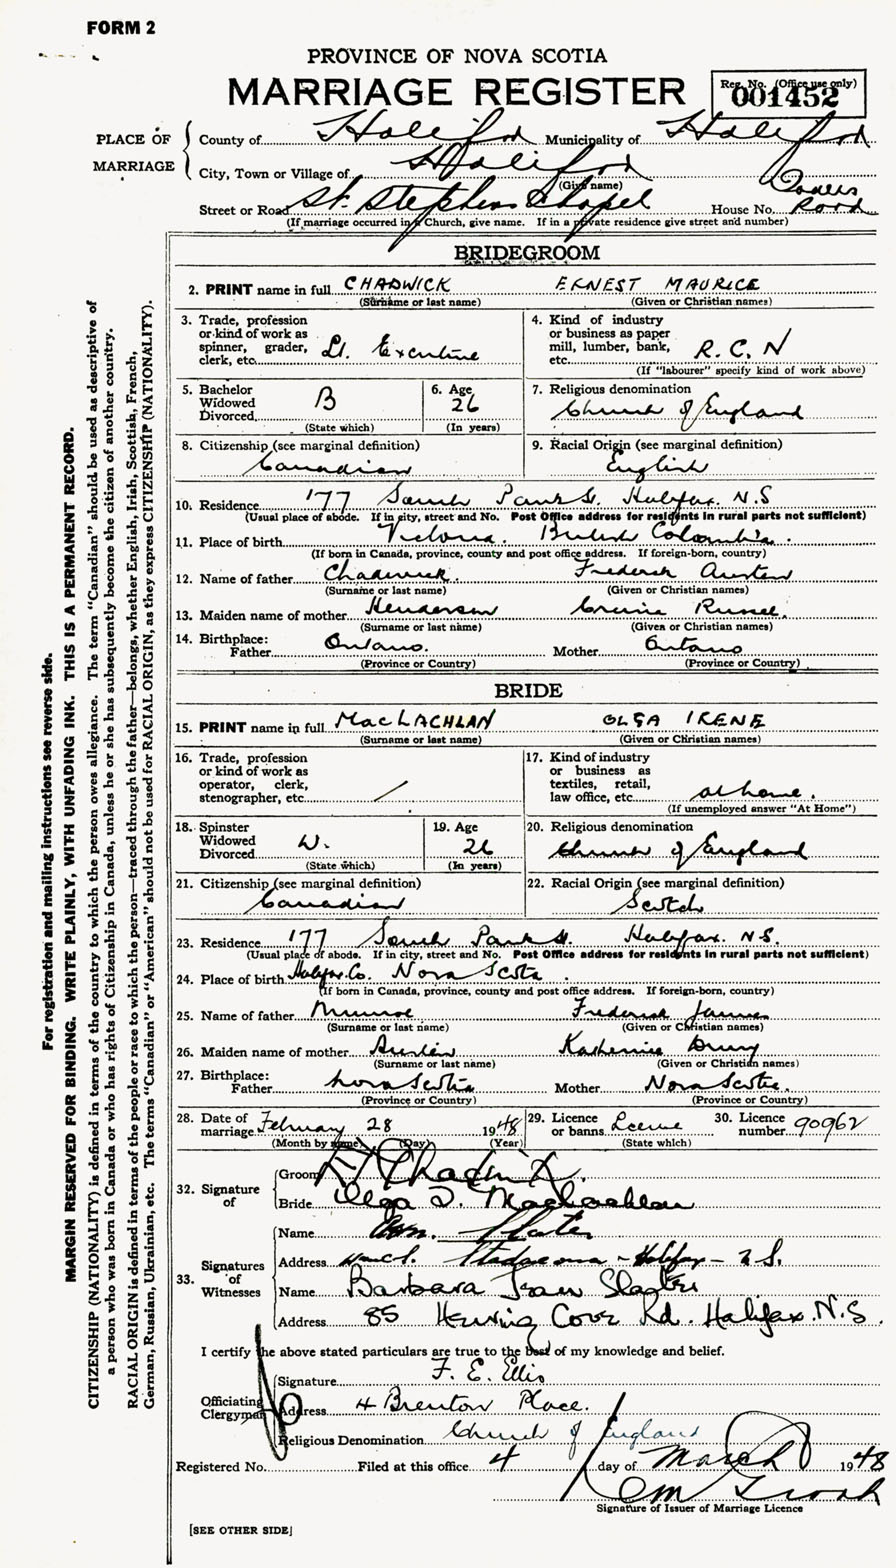 FORM 2
PROVINCE OF NOVA SCOTIA
MARRIAGE REGISTER
Reg. No. (Office use only)
001452
PLACE OF MARRIAGE
County of Halifax Municipality of Halifax
City, Town or Village of Halifax
(Give name)
Street or Road St. Stephens Chapel House No. Road
(If marriage occurred in a Church, give name. If in a private residence give street and number)
BRIDEGROOM
2. PRINT name in full CHADWICK ERNEST MAURICE
(Surname or last name) (Given or Christian names)
3. Trade, profession or kind of work as spinner, grader, clerk, etc. Lt. Executive
4. Kind of industry or business as paper mill, lumber, bank, etc. R.C.N
(If "labourer" specify kind of work above)
5. Bachelor Widowed Divorced B
(State which)
6. Age 26
(In years)
7. Religious denomination
Church of England
8. Citizenship (see marginal definition)
Canadian
9. Racial Origin (see marginal definition)
English
10. Residence 177 South Park St. Halifax. N.S
(Usual place of abode. If in city, street and No. Post Office address for residents in rural parts not sufficient)
11. Place of birth Victoria. British Colombia.
(If born in Canada, province, county and post office address. If foreign-born, country)
12. Name of father Chadwick. Frederick Austen
(Surname or last name) (Given or Christian names)
13. Maiden name of mother Henderson Russel.
(Surname or last name) (Given or Christian names)
14. Birthplace:
Father Ontario. Mother Ontario
(Province or Country) (Province or Country)
BRIDE
15. PRINT name in full MacLACHLAN OLGA IRENE
(Surname or last name) (Given or Christian names)
16. Trade, profession or kind of work as operator, clerk, stenographer, etc. /
17. Kind of industry or business as textiles, retail, law office, etc. at home.
(If unemployed answer "At Home")
18. Spinster Widowed Divorced W.
(State which)
19. Age 26
(In years)
20. Religious denomination
Church of England
21. Citizenship (see marginal definition)
Canadian
22. Racial Origin (see marginal definition)
Scotch
23. Residence 177 South Park St. Halifax. N.S.
(Usual place of abode. If in city, street and No. Post Office address for residents in rural parts not sufficient)
24. Place of birth Halifax. Co. Nova Scotia.
(If born in Canada, province, county and post office address. If foreign-born, country)
25. Name of father Munroe Frederick James
(Surname or last name) (Given or Christian names)
26. Maiden name of mother Austin Katherine Drury
(Surname or last name) (Given or Christian names)
27. Birthplace:
Father Nova Scotia Mother Nova Scotia.
(Province or Country) (Province or Country)
28. Date of marriage February 28 1948
(Month by name) (Day) (Year)
29. Licence or banns Licence
(State which)
30. Licence number 90962
32. Signature of
Groom Chadwick.
Bride Olga I. MacLachlan
33. Signatures of Witnesses
Name Slater
Address H.M.C.S. Stadacona - Halifax - N.S.
Name Barbara Jean Slater
Address 85 Herring Cove Rd. Halifax. N.S.
I certify the above stated particulars are true to the best of my knowledge and belief.
Officiating Clergyman
Signature F. E. Ellis
Address 4 Brenton Place.
Religious Denomination Church of England
Registered No. Filed at this office 4 day of March 1948
Signature of Issuer of Marriage Licence
[SEE OTHER SIDE]
For registration and mailing instructions see reverse side.
MARGIN RESERVED FOR BINDING. WRITE PLAINLY, WITH UNFADING INK. THIS IS A PERMANENT RECORD.
CITIZENSHIP (NATIONALITY) is defined in terms of the country to which the person owes allegiance. The term "Canadian" should be used as descriptive of
a person who was born in Canada or who has rights of Citizenship in Canada, unless he or she has subsequently become the citizen of another country.
RACIAL ORIGIN is defined in terms of the people or race to which the person—traced through the father—belongs, whether English, Irish, Scottish, French,
German, Russian, Ukrainian, etc. The terms "Canadian" or "American" should not be used for RACIAL ORIGIN, as they express CITIZENSHIP (NATIONALITY).